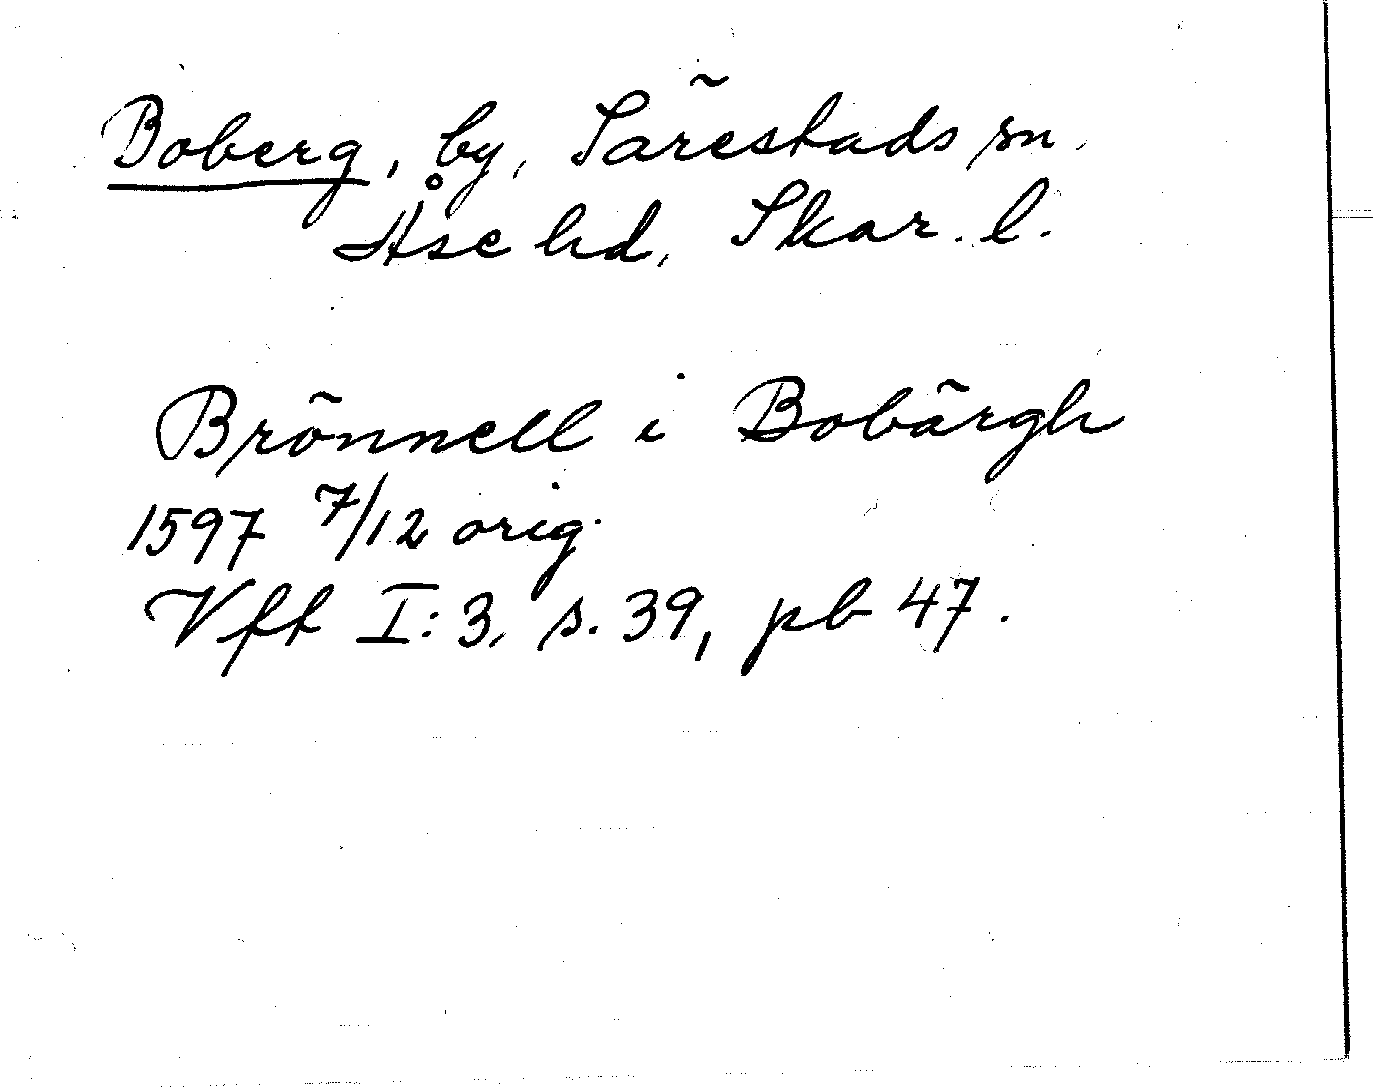 Boberg, by, Särestads sn.
Åse hd, Skar. l.
Brönnell i Bobärgh
1597 7/12 orig.
Vft I:3, s. 39, pb 47.